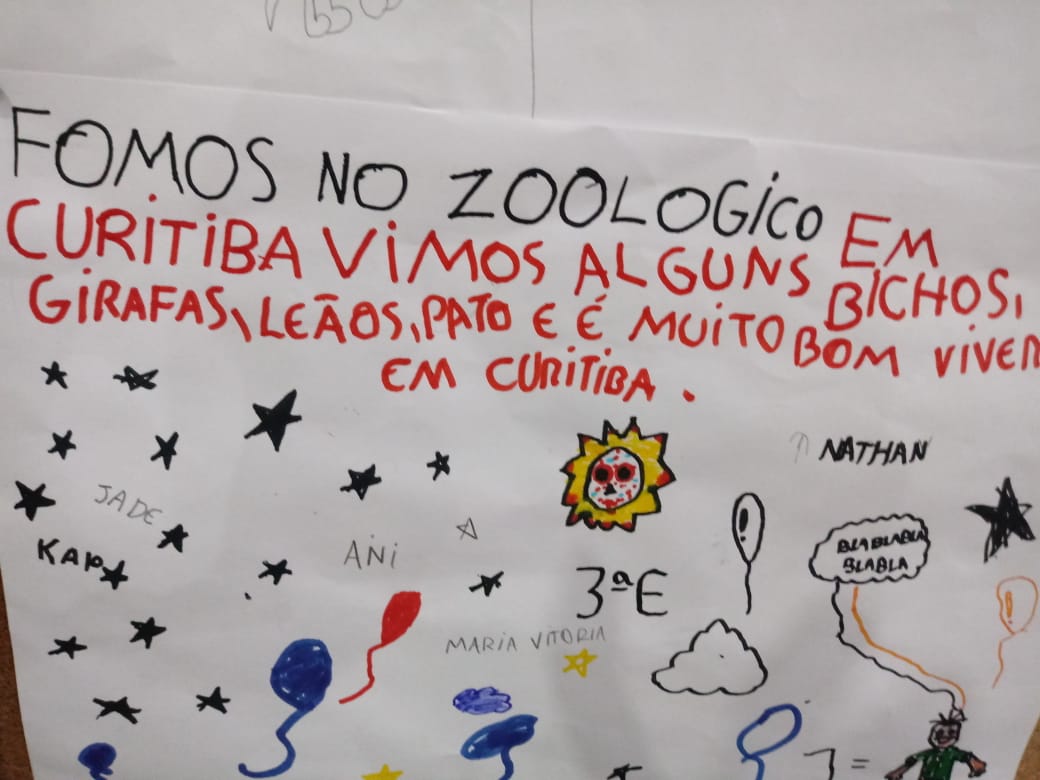 FOMOS NO ZOOLOGICO EM
CURITIBA VIMOS ALGUNS BICHOS,
GIRAFAS, LEÃOS, PATO E É MUITO BOM VIVER
EM CURITIBA.
NATHAN
JADE
BLABLABLA
BLABLA
ANI
KAP
3ªE
MARIA VITORIA